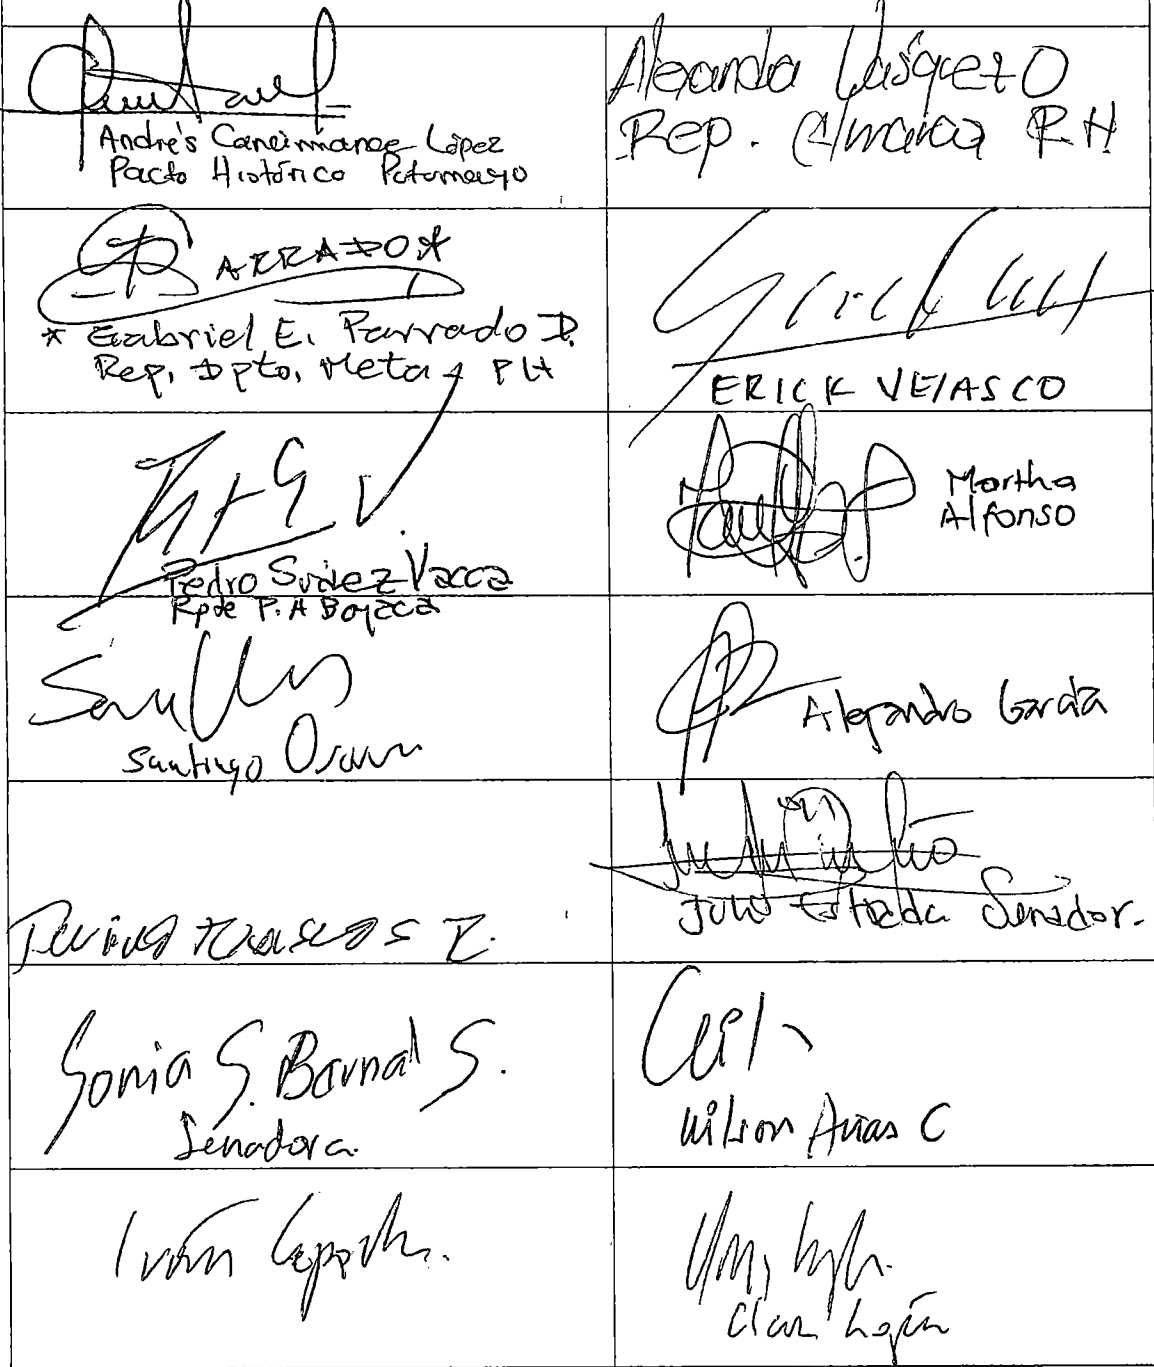 Andrés Cancimance López
Pacto Histórico Putumayo
Alexandra Vásquez O
Rep. Cámara P.H
PARRADO*
* Gabriel E. Parrado D.
Rep, Dpto, Meta PH
ERICK VELASCO
Pedro Suárez Vacca
Rpte P.H Boyacá
Martha
Alfonso
Santiago Osorio
Alejandro García
Julio Estrada Senador.
Sonia S. Bernal S.
Senadora.
Wilson Arias C
Iván Cepeda.
Clara López